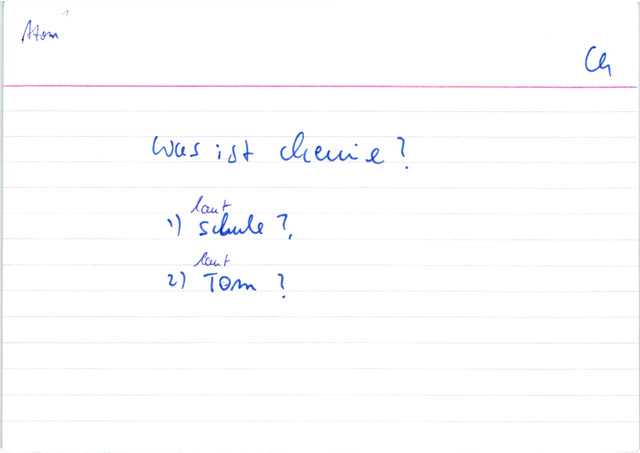 Atom 1
Ch
Was ist chemie?
laut
1) Schule?
laut
2) Tom?